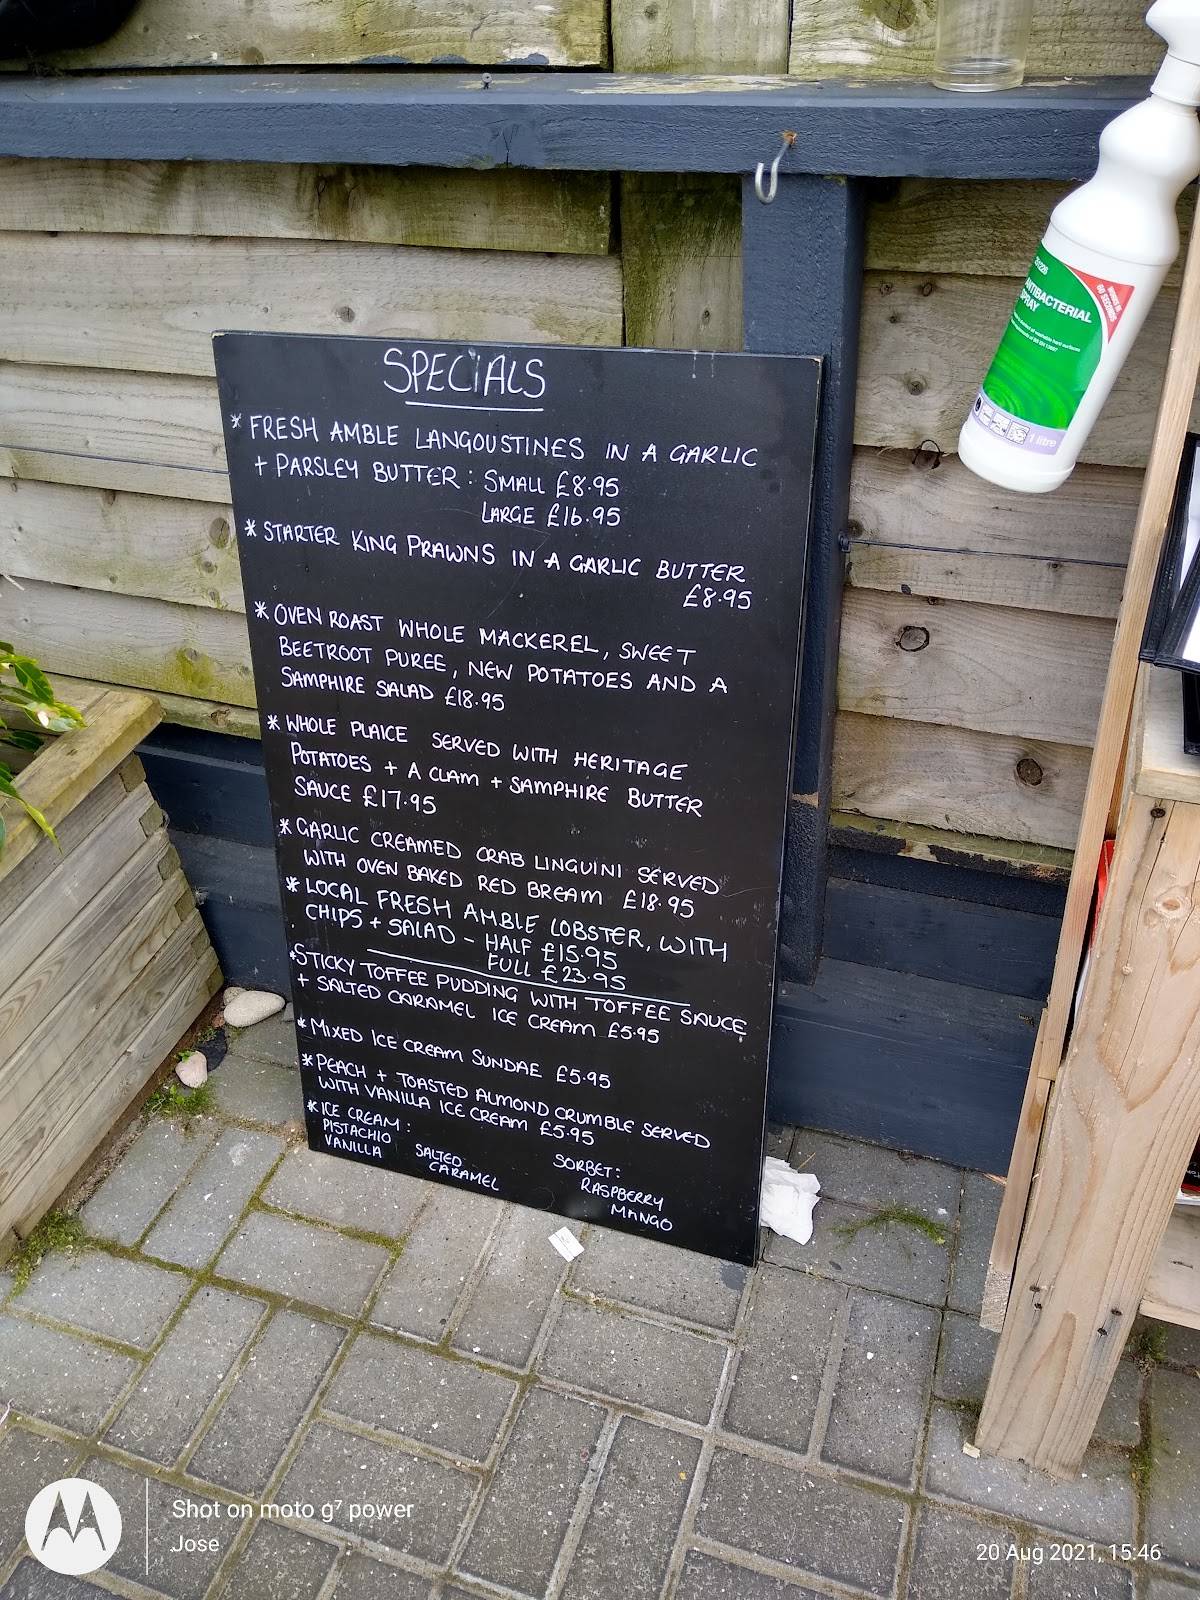 SPECIALS
* FRESH AMBLE LANGOUSTINES IN A GARLIC
+ PARSLEY BUTTER : SMALL £8.95
LARGE £16.95
* STARTER KING PRAWNS IN A GARLIC BUTTER
£8.95
* OVEN ROAST WHOLE MACKEREL, SWEET
BEETROOT PUREE, NEW POTATOES AND A
SAMPHIRE SALAD £18.95
* WHOLE PLAICE SERVED WITH HERITAGE
POTATOES + A CLAM + SAMPHIRE BUTTER
SAUCE £17.95
* GARLIC CREAMED CRAB LINGUINI SERVED
WITH OVEN BAKED RED BREAM £18.95
* LOCAL FRESH AMBLE LOBSTER, WITH
CHIPS + SALAD - HALF £15.95
FULL £23.95
* STICKY TOFFEE PUDDING WITH TOFFEE SAUCE
+ SALTED CARAMEL ICE CREAM £5.95
* MIXED ICE CREAM SUNDAE £5.95
* PEACH + TOASTED ALMOND CRUMBLE SERVED
WITH VANILLA ICE CREAM £5.95
* ICE CREAM :
PISTACHIO
VANILLA
SALTED
CARAMEL
SORBET:
RASPBERRY
MANGO
ANTIBACTERIAL
SPRAY
60 SECONDS
1 litre
Shot on moto g⁷ power
Jose
20 Aug 2021, 15:46